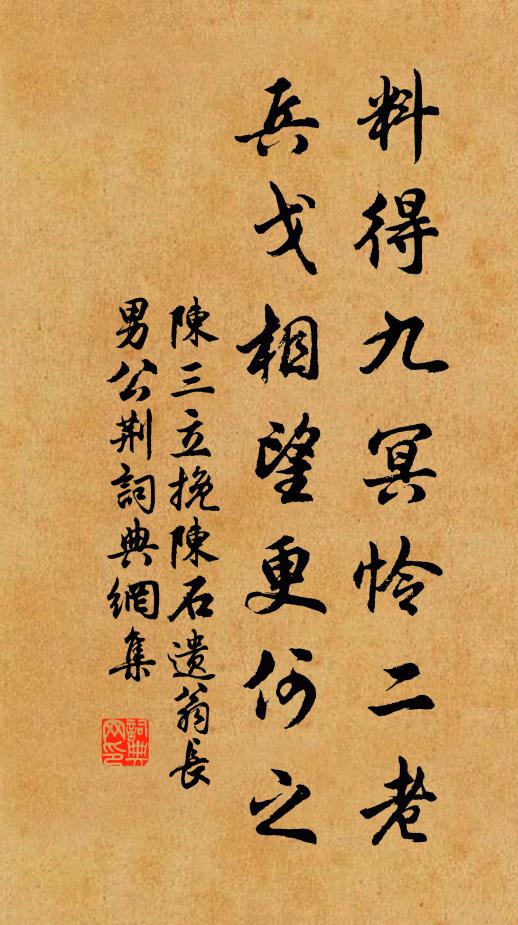 料得九冥怜二老
兵戈相望更何之
陳三立挽陳石遺翁長
男公荆詞典網集
詞典
网印